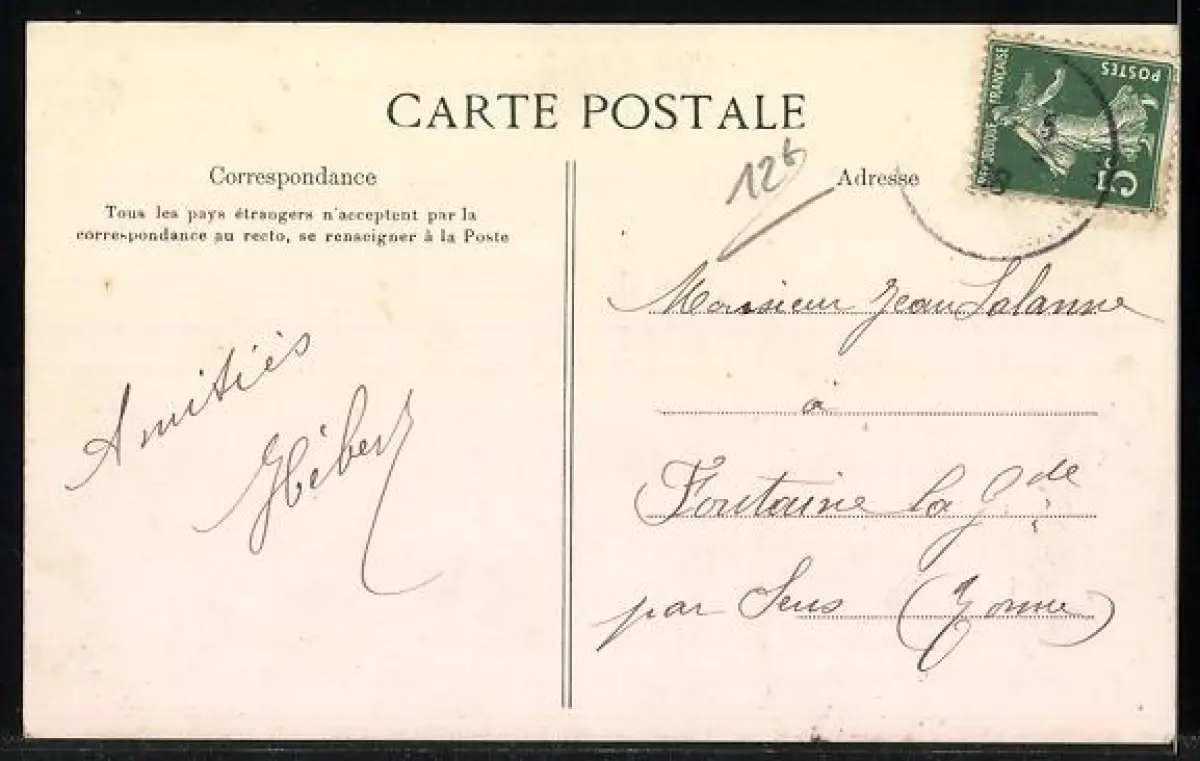 CARTE POSTALE
Correspondance
Tous les pays étrangers n'acceptent pas la
correspondance au recto, se renseigner à la Poste
Amitiés
Hébert
12 6
Adresse
Monsieur Jean Lalanne
à
Fontaine la Gde
par Sens (Yonne)
REPUBLIQUE FRANÇAISE
POSTES
5